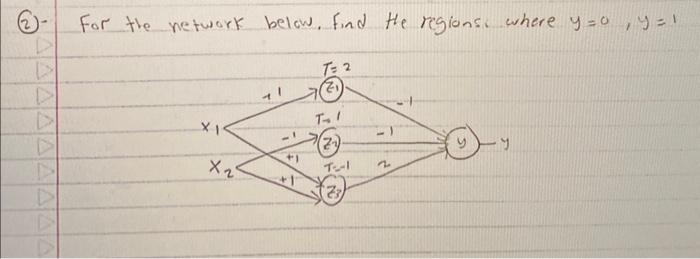 ②- For the network below, find the regions. where y=0, y=1
T=2
+1 Z1 -1
T=1
X1 -1 Z2 -1 y y
X2 +1 T=-1 2
+1 Z3